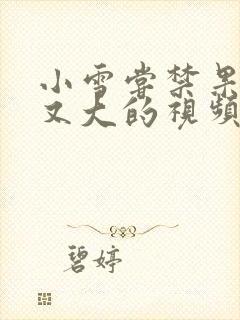 小雪嘗禁果
又大的視頻
碧婷